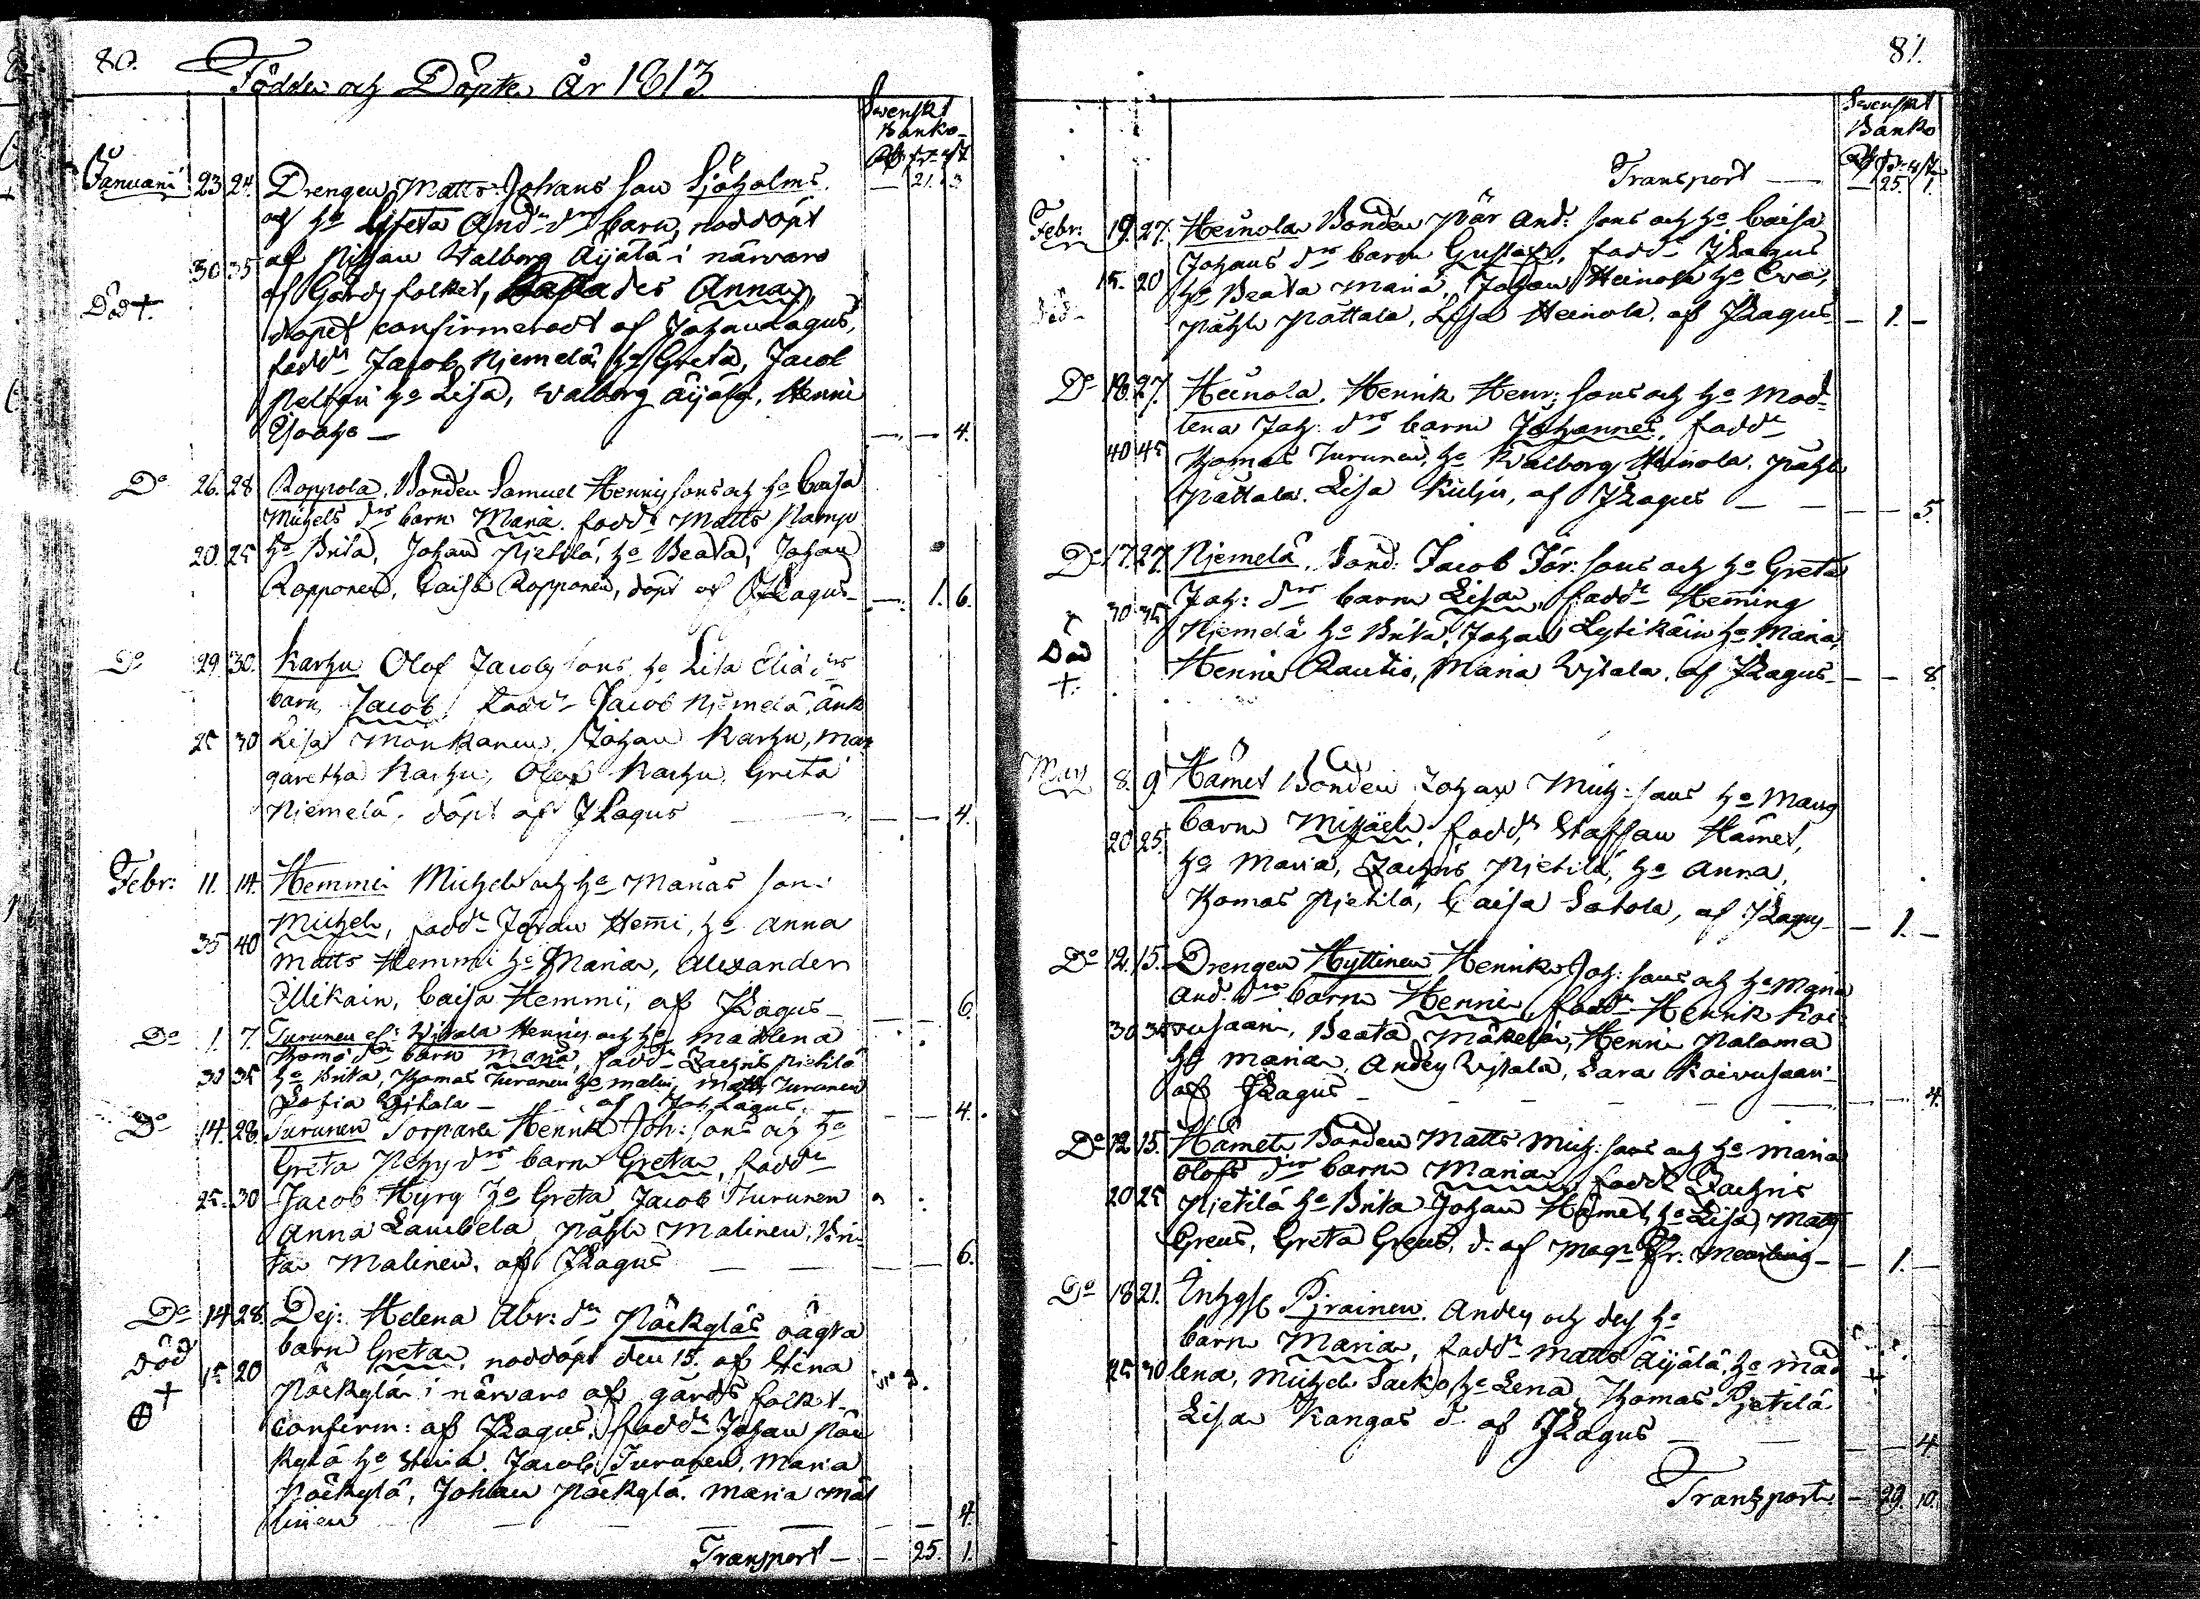 80.
Födde och Döpte År 1813.
Swenskt
Banko
21. 3
Januarii 23 24. Drengen Matts Johans son Sjöholms
och ho Greta And: drs barn, nöddöpt
30 35 af Pigan Walborg Äijälä i närvaro
Död +. af Gårdsfolket, kallades Anna,
döpet confirmeradt af Johan Lagus,
fadd: Jacob Niemelä ho Greta, Jacob
ho Lisa, Walborg Äijälä, Henric
— 4.
Do 26. 28 Roppola. Bonden Samuel Henrics sons och ho Caisa
Michels drs barn Maria. fadd: Matts
20. 25 ho Brita, Johan Pietilä, ho Beata, Johan
Ropponen, Caisa Ropponen, döpt af JLagus — 1. 6.
Do 29 30. Karhu Olof Jacobs sons ho Lisa Eliæ drs
barn, Jacob, fadd: Jacob Niemelä, änk
25 30 Lisa Mönkänen, Johan Karhu, Mar
garetha Karhu, Olof Karhu, Greta
Niemelä. döpt af JLagus — 4.
Febr: 11. 14. Hemmi Michels och ho Marias son:
Michel, fadd: Johan Hemi, ho Anna
35 40 Matts Hemmi ho Maria, Alexander
Ellikain, Caisa Hemmi, af JLagus — 6.
Do 1. 7. Turunen el: Ujtala Henrics och ho Madlena
Thomæ drs barn Maria, fadd: Zachris Pietilä
30 35 ho Brita, Thomas Turunen ho Malin, Matts Turunen
Sofia Ujtala — af Joh: Lagus. — 4.
Do 14. 28. Turunen Torpare Henrik Joh: sons och ho
Greta Pehrs drs barn Greta, fadd:
25. 30 Jacob Hyry ho Greta Jacob Thurunen
Anna Laukela, Påhl Malinen, Bri
ta Malinen. af JLagus — 6.
Do 14 28. Dej: Helena Abr: dr Näckyläs oägta
död barn Greta, nöddöpt den 15. af Stina
15 20 Näckylä i närvaro af gårds folket.
+ confirm: af JLagus, fadd: Johan Näc
kylä ho Stina. Jacob Turunen, Maria
Näckylä, Johan Näckylä. Maria Mal
linen — 4.
Transport — 25. 1.
81.
Swenskt
Banko
Transport — 25. 1.
Febr: 19. 27. Heinola Bonden Pär And: sons och ho Caisa
Johans drs barn Gustaf, fadd: JLagus
15. 20 ho Beata Maria, Johan Heinola ho Eva,
Död Påhl Pättala, Lisa Heinola. af JLagus — 1. —
Do 18. 27. Heinola. Henrik Henr: sons och ho Mad
lena Joh: drs barn Johannes, fadd:
40 45 Thomas Turunen, ho Walborg Heinola. Påhl
Pättala. Lisa Kulju, af JLagus — 5.
Do 17. 27. Niemelä. Bond: Jacob Jör: sons och ho Greta
Joh: drs barn Lisa, fadd: Heming
30 35 Niemelä ho Brita, Johan Lytikäin ho Maria,
Död Henric Rautio, Maria Ujtala. af JLagus — 8.
+
Mars 8. 9 Hämet Bonden Johan Mich: sons ho Marg
barn Michäel, fadd: Staffan Hämet,
20 25. ho Maria, Zachris Pietilä, ho Anna,
Thomas Pietilä, Caisa Satola, af JLagus — 1. —
Do 12. 15. Drengen Hyttinen Henriks Joh: sons och ho Maria
And: drs barn Henric, fadd: Henrik Koi
30 35 vusaari, Beata Mäkelä, Henric Palama
ho Maria, Anders Ujtala, Sara Koivusaari
af JLagus — 4.
Do 12 15. Hämet Bonden Matts Mich: sons och ho Maria
Olofs drs barn Maria, fadd: Zachris
20 25 Pietilä ho Brita Johan Hämet, ho Lisa, Matts
Greus, Greta Greus, d. af Mag: — 1. —
Do 18 21. Inhys: Pjrainen. Anders och des ho
barn Maria, fadd: Matts Äijälä, ho Mad
25 30 lena, Michel Sacko ho Lena, Thomas Pjetilä
Lisa Kangas d. af JLagus — 4
Transport. — 29. 10.